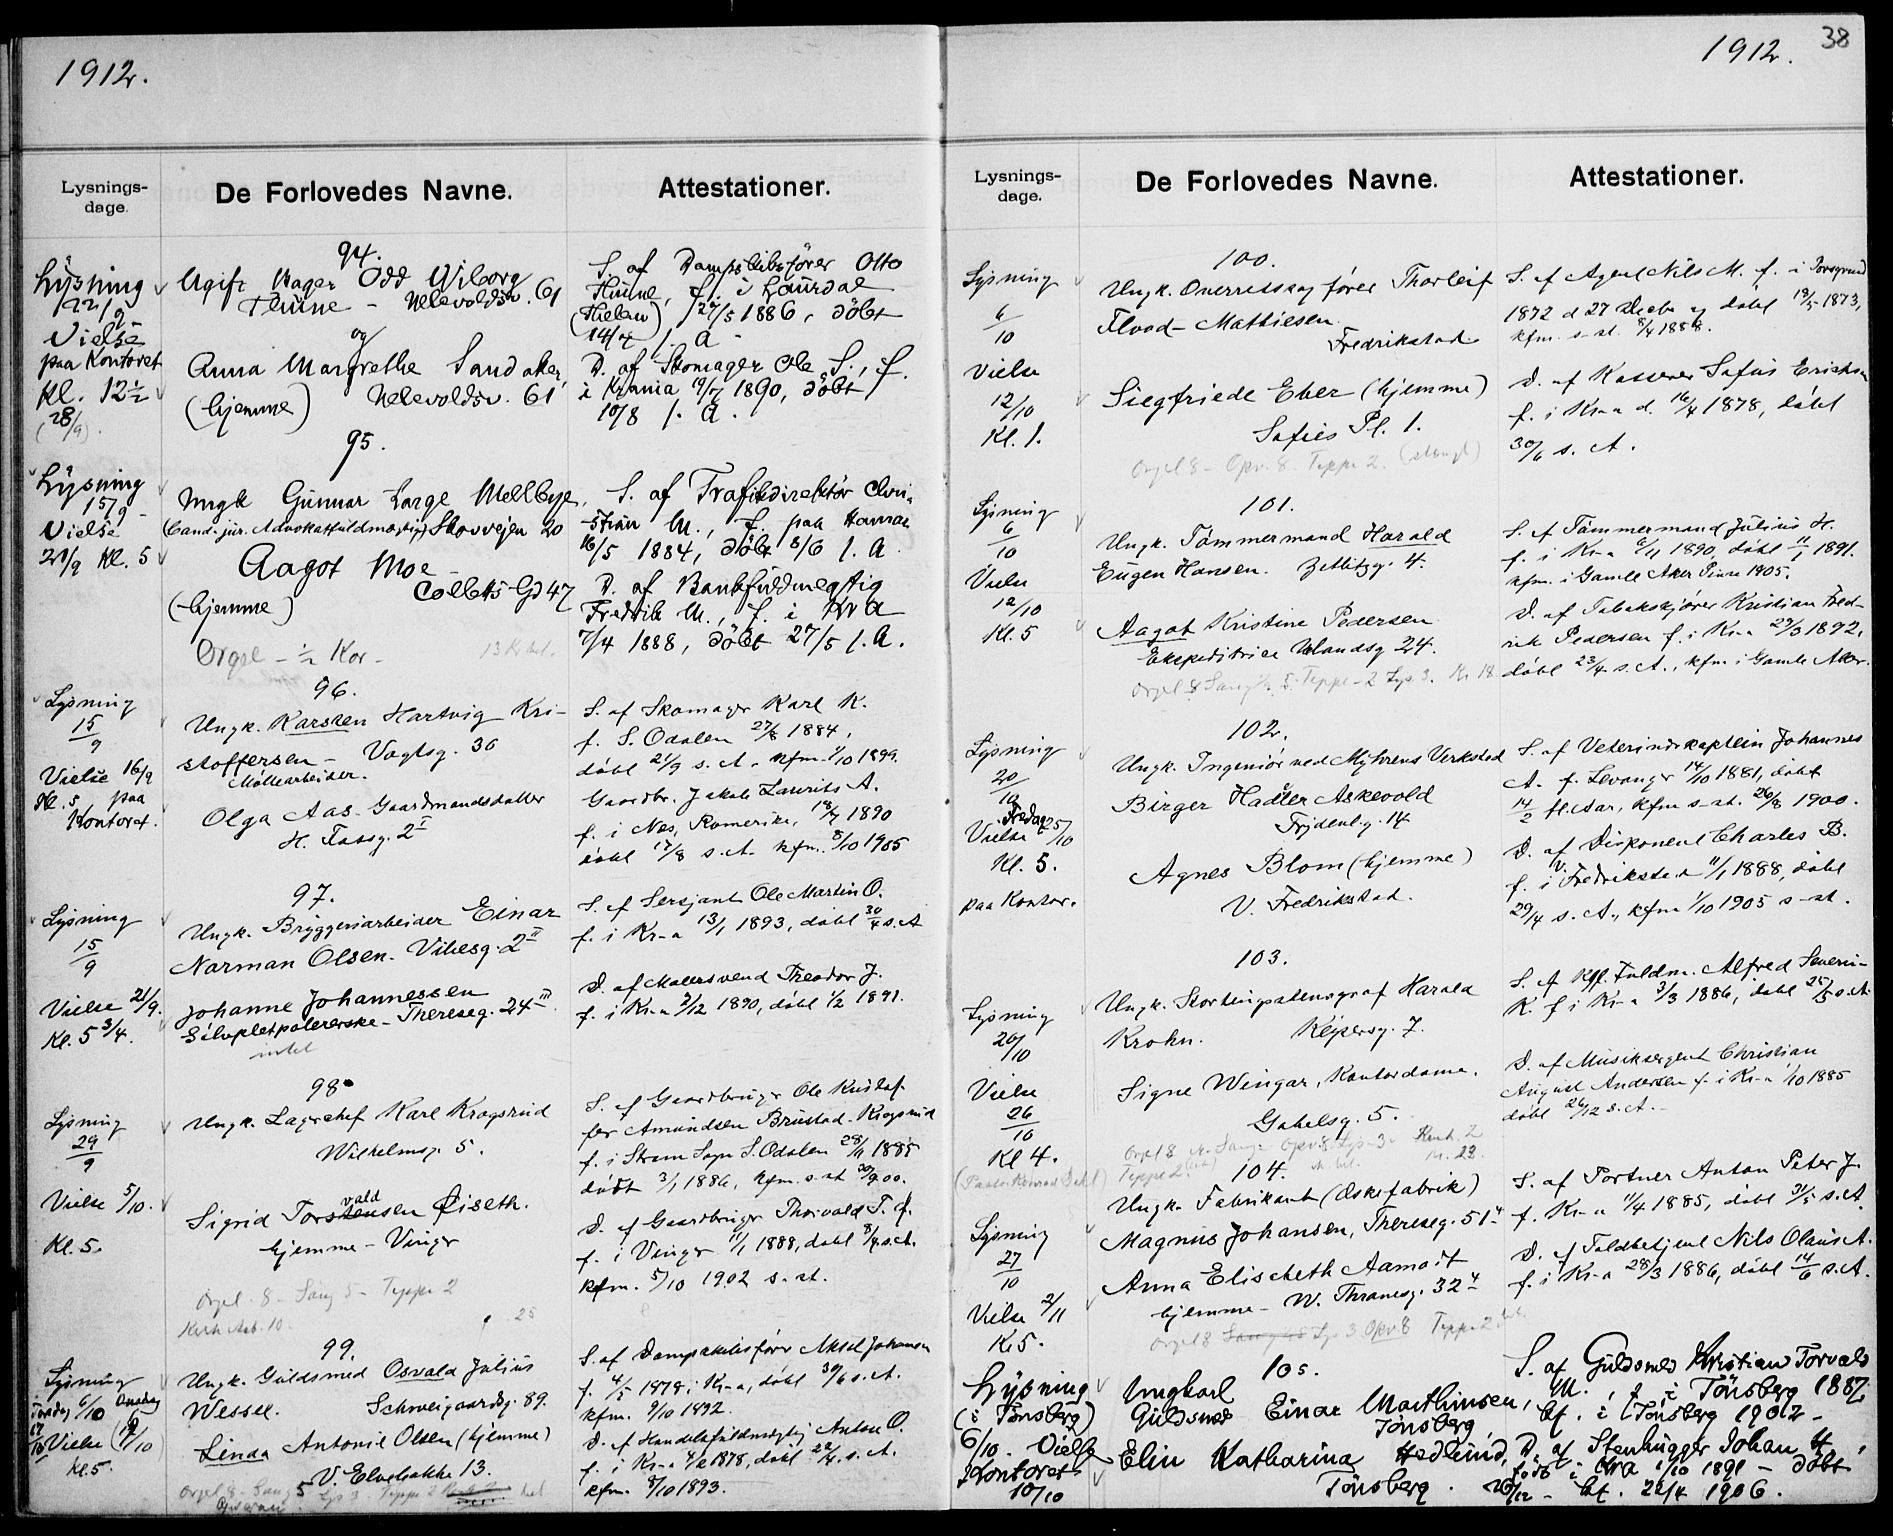 1912.
Lysnings-
dage.
De Forlovedes Navne.
Attestationer.
94.
Lysning
22/9
Vielse
paa Kontoret
Kl. 12½
(28/9).
Ugift Bager Odd Wiborg
Thune - Ullevoldsv. 61
og
Anna Margrethe Sandaker
(hjemme) Ullevoldsv. 61
S. af Dampskibsfører Otto
Thune, f. i Laurdal
27/5 1886, döbt
14/4 f. A
D. af Skomager Ole S., f.
i Krania 19/7 1890, döbt
10/8 f. A.
95.
Lysning
15/9 -
Vielse
21/9 Kl. 5
Ungk Gunnar Lange Mellbye,
Cand. jur. Advokatfuldmægtig Skovvejen 20
Aagot Moe
Colletts Gd 47
(hjemme)
Orgel - ½ Kor -
S. af Trafikdirektör Chri-
stian M., f. paa Hamar
16/5 1884, döbt 8/6 f. A.
D. af Bankfuldmegtig
Fredrik M., f. i Kra
7/4 1888, döbt 27/5 f. A.
96.
Lysning
15/9
Vielse 16/9
Kl. 5 paa
Kontoret.
Ungk. Karsten Hartvig Kri-
stoffersen - Vogtsg. 36
Möllearbeider.
Olga Aas - Gaardmandsdatter
H. Tassg. 2 I
S. af Skomager Karl K.
f. S. Odalen 27/8 1884,
döbt 21/9 s. A. kfm. 1/10 1899.
Gaardbr. Jakob Laurits A.
f. i Nes, Romerike, 18/7 1890
döbt 17/8 s. A. kfm. 8/10 1905
97.
Lysning
15/9
Vielse 21/9.
Kl. 5 3/4.
Ungk. Bryggeriarbeider Einar
Norman Olsen - Vibesg. 2 II
Johanne Johannessen
Sölvpletpolererske - Thereseg. 24 III
intet
S. af Sersjant Ole Martin O.
f. i Kr-a 13/1 1893, döbt 30/4 s. A
D. af Malersvend Theodor J.
f. i Kr-a 2/12 1890, döbt 1/2 1891.
98.
Lysning
29/9
Vielse 5/10.
Kl. 5.
Ungk. Lagerchef Karl Krogsrud
Wilhelmsg. 5.
Sigrid Torvald Øiseth.
hjemme - Vinger
Orgel - 8 - Sang 5 - Teppe 2
25
S. af Gaardbruger Ole Kristof-
fer Amundsen Brustad - Krogsrud
f. i Strøm Sogn S. Odalen 28/11 1885
döbt 3/1 1886, kfm. s. st 30/9 00.
D. af Gaardbruger Thorvald T. Ø.
f. i Vinger 11/1 1888, döbt 8/4 s. A.
kfm. 5/10 1902 s. st.
99.
Lysning
6/10 Onsdag
Vielse
Kl. 5.
Ungk. Guldsmed Osvald Julius
Wessel. Schweigaardsg. 89.
Linda Antonie Olsen (hjemme)
V. Elvebakke 13.
S. af Dampskibsfører Aksel Johansen
f. 4/5 1878 i Kr-a, döbt 30/6 s. A.
kfm. 9/10 1892.
D. af Handelsfuldmegtig Anton O.
f. i Kr-a 4/2 1878, döbt 22/4 s. A.
kfm. 8/10 1893.
1912. 38
Lysnings-
dage.
De Forlovedes Navne.
Attestationer.
100.
Lysning
6/10
Vielse
12/10
Kl. 1.
Ungk. Overretssagfører Thorleif
Flood-Mathiesen.
Fredrikstad
Siegfriede Eber (hjemme)
Sofies Pl. 1.
Orgel 8 - Opv. 8. Teppe 2.
S. af Agent Nils M. f. i Porsgrund
1872 d 27 Decbr og döbt 19/5 1873,
kfm. s. st. 8/4 1888.
D. af Kasserer Sofus Erichsen
f. i Kr-a d. 16/4 1878, döbt
30/6 s. A.
101.
Lysning
6/10
Vielse
12/10
Kl. 5
Ungk. Tömmermand Harald
Eugen Hansen. Zetlitzg. 4.
Aagot Kristine Pedersen
Ekspeditrice Uelandsg 24.
S. af Tömmermand Julius H.
f. i Kr-a 6/11 1890, döbt 11/1 1891.
kfm. i Gamle Aker Pinse 1905.
D. af Tobakskjører Kristian Fred-
rik Pedersen f. i Kr-a 29/3 1892,
döbt 23/4 s. A., kfm i Gamle Aker.
102.
Lysning
20/10
Fredag
Vielse 25/10
Kl. 5.
paa Kontor.
Ungk. Ingeniör ved Myhrens Verksted
Birger Hadler Askevold
Frydenl.g. 14
Agnes Blom (hjemme)
V. Fredrikstad.
S. af Veterinærkaptein Johannes
A. f. Levanger 14/10 1881, döbt
14/2 fl. Aar, kfm s. st. 26/8 1900.
D. af Disponent Charles B.
f. i V. Fredrikstad 11/1 1888, döbt
29/4 s. A., kfm 1/10 1905 s. st.
103.
Lysning
20/10
Vielse
26/10
Kl 4.
Ungk. Stortingsstenograf Harald
Krohn. Keysersg. 7.
Signe Wingar, Kontordame.
Gabelsg. 5.
S. af Kgl. Fuldm. Alfred Severin
K. f i Kr-a 3/3 1886, döbt 25/5 s. A
D. af Musiksergent Christian
August Andersen f. i Kr-a 1/10 1885
döbt 26/12 s. A. -
104.
Lysning
27/10
Vielse 2/11
Kl 5.
Ungk. Fabrikant (Æskefabrik)
Magnus Johansen, Thereseg. 51
Anna Elisabeth Aamodt
hjemme - W. Thranesg. 32
S. af Portner Anton Peter J.
f. Kr-a 11/4 1885, döbt 31/5 s. A.
D. af Toldbetjent Nils Olaus A.
f. i Kr-a 28/3 1886, döbt 14/6 s. A.
105.
Lysning
(i Tönsberg)
6/10. Vielse
Kontoret
10/10
Ungkarl
Guldsmed Einar Marthinsen,
Tönsberg
Elin Katharina Hedlund,
Tönsberg.
S. af Guldsmed Kristian Torvald
M., f. i Tönsberg 1887,
kf. i Tönsberg 1902 -
D. af Stenhugger Johan H.,
født i Kra 1/10 1891 - döbt
26/12 - kf. 22/4 1906.